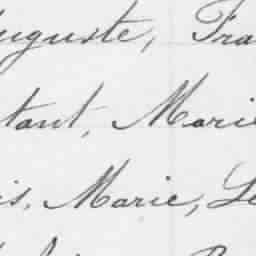 Auguste, Fra
tant, Marie
is, Marie, Le